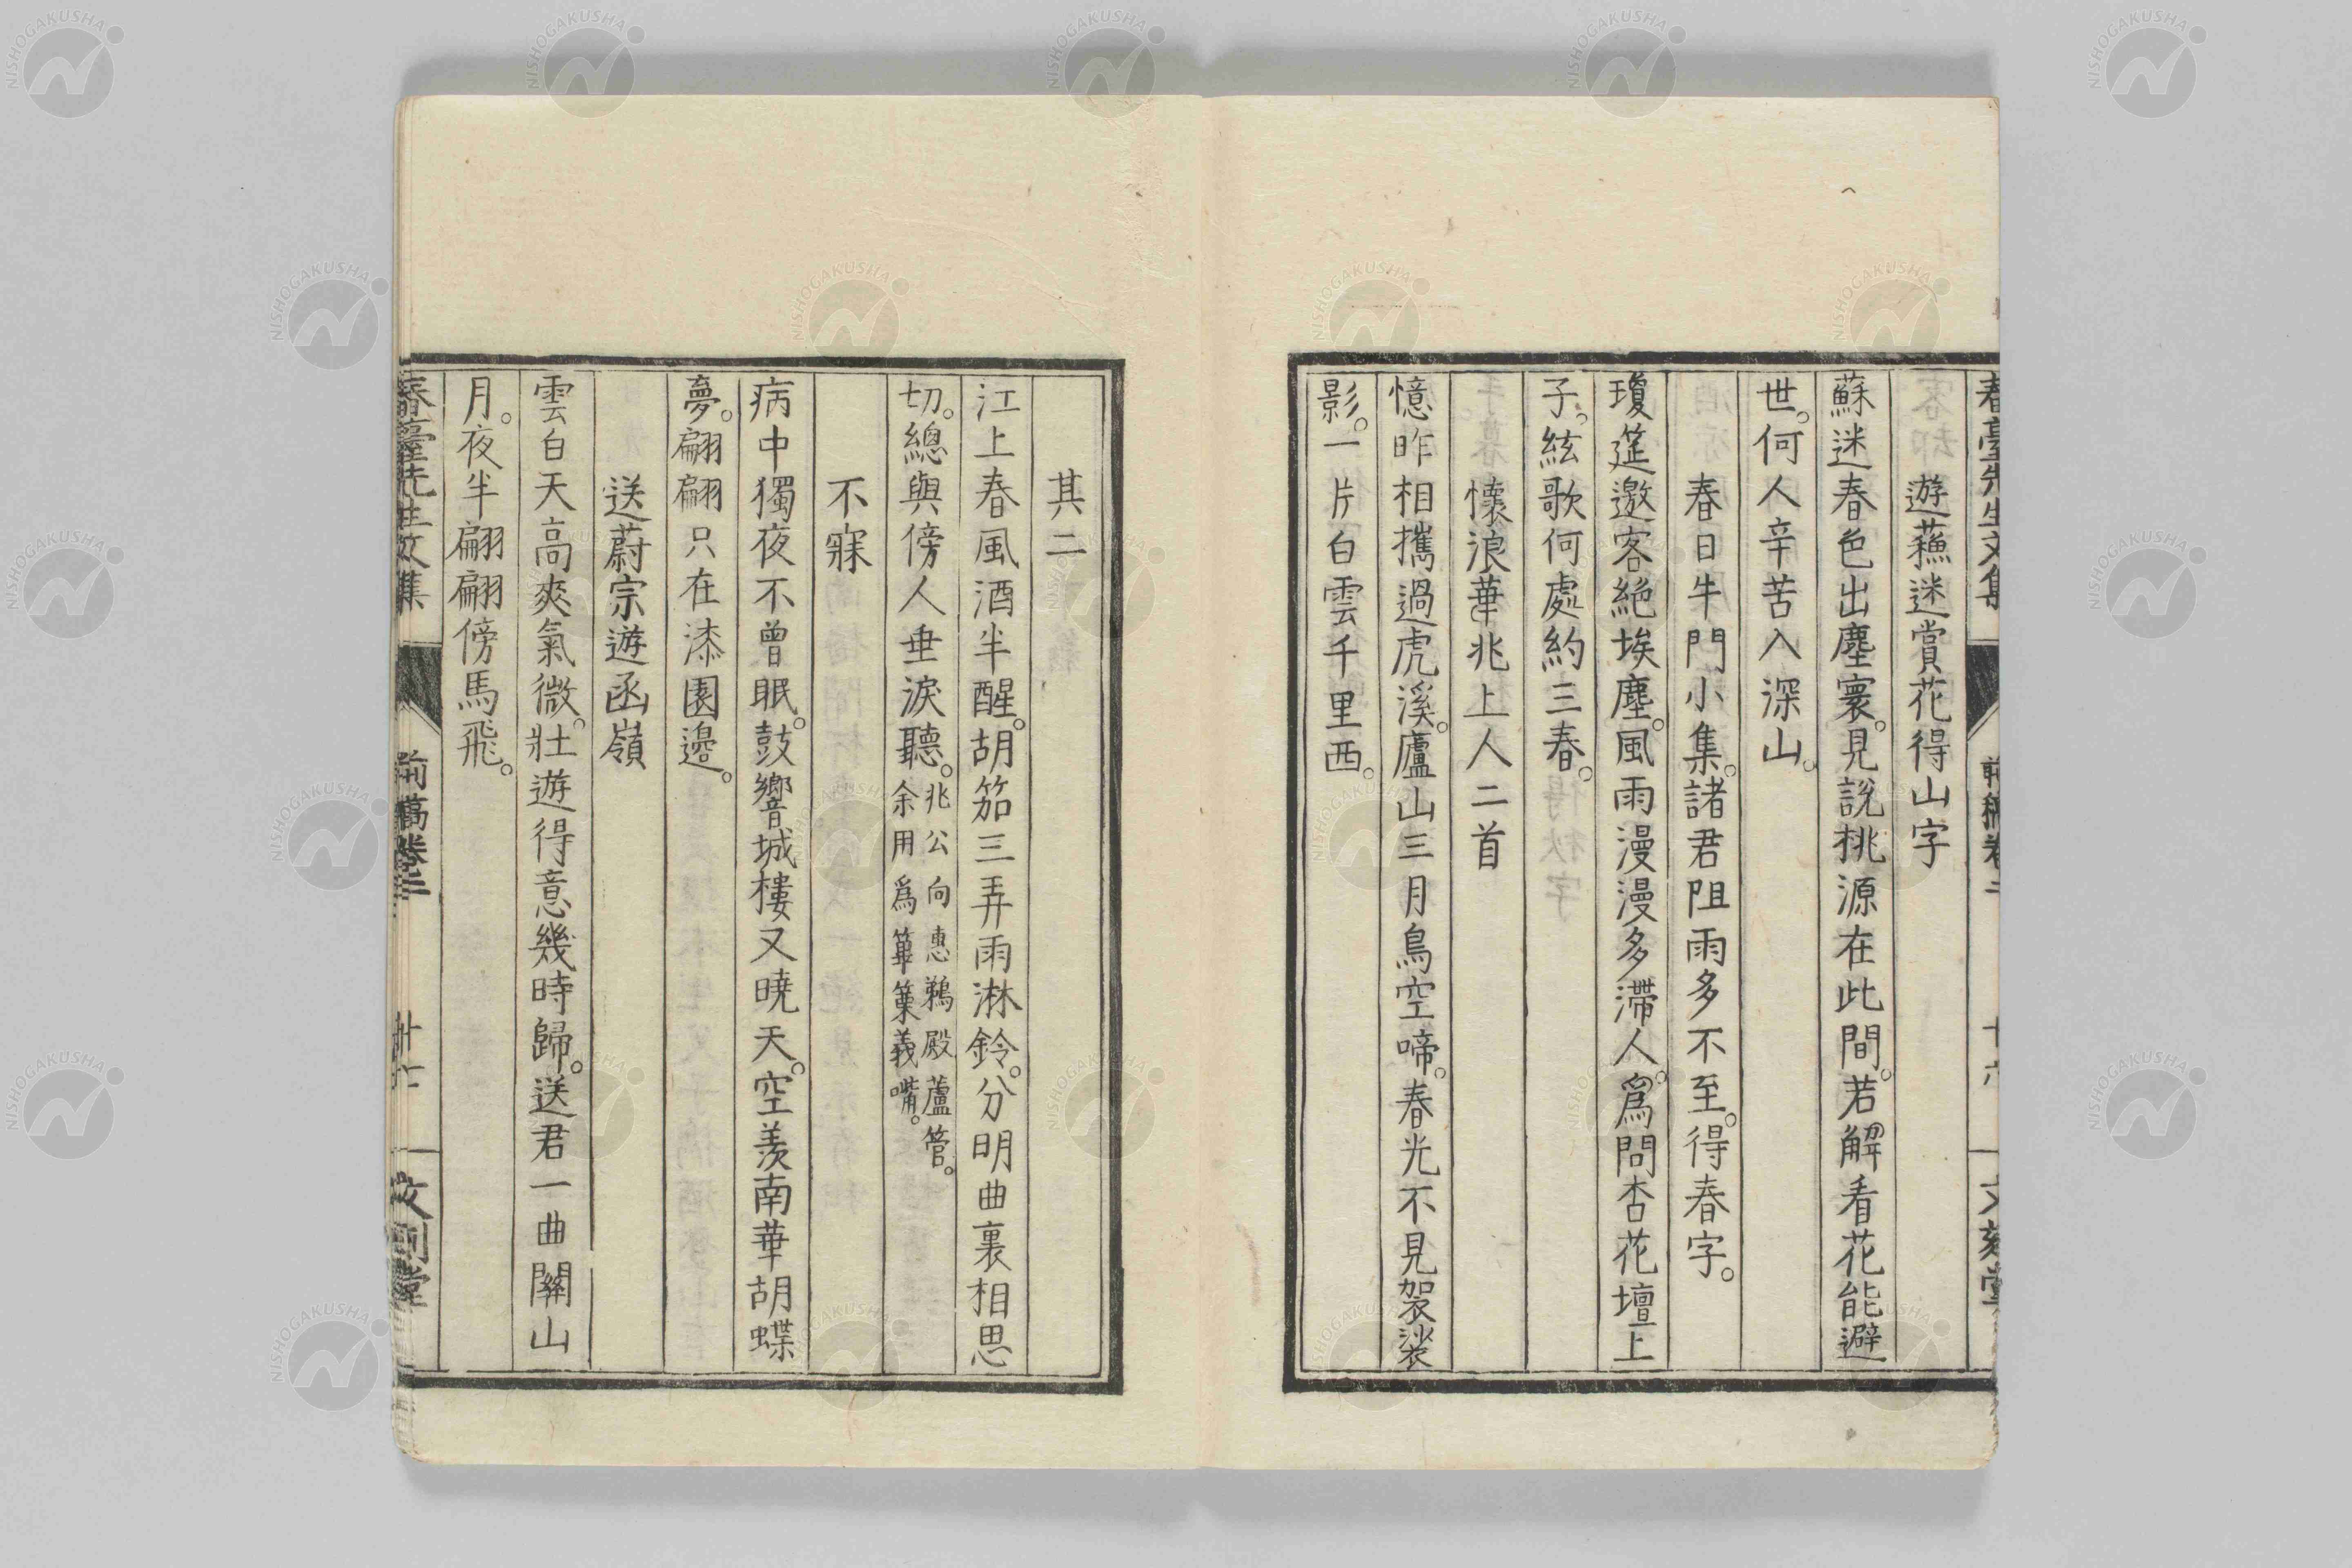 春臺先生文集 前稿卷二 十六 文刻堂
遊蘓迷賞花得山字
蘇迷春色出塵寰。見說桃源在此間。若解看花能避
世。何人辛苦入深山。
春日牛門小集。諸君阻雨多不至。得春字。
瓊筵邀客絕埃塵。風雨漫漫多滯人。爲問杏花壇上
子。絃歌何處約三春。
懷浪華兆上人二首
憶昨相攜過虎溪。廬山三月鳥空啼。春光不見袈裟
影。一片白雲千里西。
其二
江上春風酒半醒。胡笳三弄雨淋鈴。分明曲裏相思
切。總與傍人垂淚聽。兆公向惠鵜殿蘆管。
余用爲篳篥義嘴。
不寐
病中獨夜不曾眠。鼓響城樓又曉天。空羨南華胡蝶
夢。翩翩只在漆園邊。
送蔚宗遊函嶺
雲白天高爽氣微。壯遊得意幾時歸。送君一曲關山
月。夜半翩翩傍馬飛。
春臺先生文集 前稿卷二 文刻堂
NISHOGAKUSHA